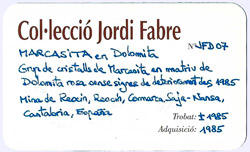 Col·lecció Jordi Fabre
MARCASITA en Dolomita
Nº JFD07
Grup de cristalls de Marcasita en matriu de
Dolomita rosa sense signes de deteriorament des 1985
Mina de Reocín, Reocín, Comarca Saja-Nansa,
Cantabria, España
Trobat: ± 1985
Adquisició: 1985